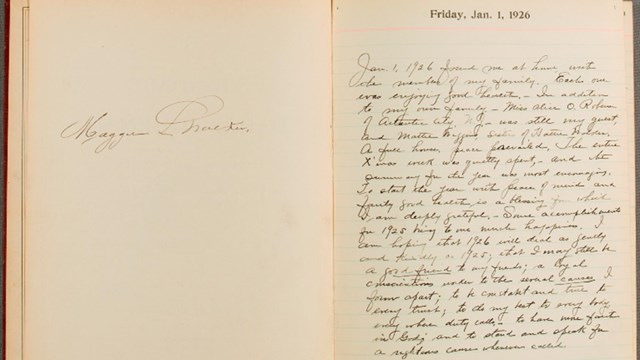 Maggie L. Walker.
Friday, Jan. 1, 1926
Jan. 1, 1926 found me at home with
the members of my family. Each one
was enjoying good health, - In addition
to my own family - Miss Alice O.
of Atlantic City, N.J. was still my guest
and Mattie sister of Hattie
A full house, peace prevailed. The entire
X'mas week was quietly spent, - and the
summary for the year was most encouraging.
To start the year with peace of mind and
fairly good health, is a blessing for which
I am deeply grateful, - Some accomplishments
in 1925 bring to me much happiness. I
am hoping that 1926 will deal as gently
and kindly as 1925; that I may still be
a good friend to my friends; a loyal
conscientious worker to the several causes I
form apart; to be constant and true to
every trust; to do my best to every body
every where duty calls - to have more faith
in God; and to stand and speak for
a righteous cause wherever called